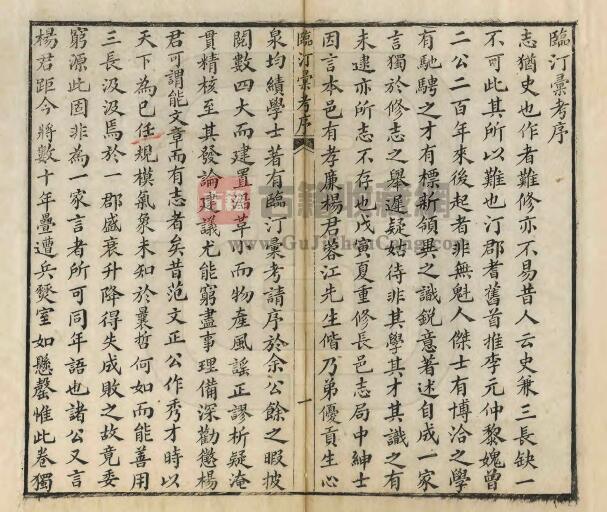 臨汀彙考序
志猶史也作者難修亦不易昔人云史兼三長缺一
不可此其所以難也汀郡耆舊首推李元仲黎媿曾
二公二百年來後起者非無魁人傑士有博洽之學
有馳騁之才有標新領異之識銳意著述自成一家
言獨於修志之舉遲疑姑待非其學其才其識之有
未逮亦所志不存也戊寅夏重修長邑志局中紳士
因言本邑有孝廉楊君蓉江先生偕乃弟優貢生心
臨汀彙考序
一
泉均績學士著有臨汀彙考請序於余公餘之暇披
閱數四大而建置沿革小而物產風謠正謬析疑淹
貫精核至其發論建議尤能窮盡事理備深勸懲楊
君可謂能文章而有志者矣昔范文正公作秀才時以
天下為己任規模氣象未知於曩哲何如而能善用
三長汲汲焉於一郡盛衰升降得失成敗之故竟委
窮源此固非為一家言者所可同年語也諸公又言
楊君距今將數十年疊遭兵燹室如懸罄惟此卷獨
古籍收藏网
www.GuJiShouCang.com